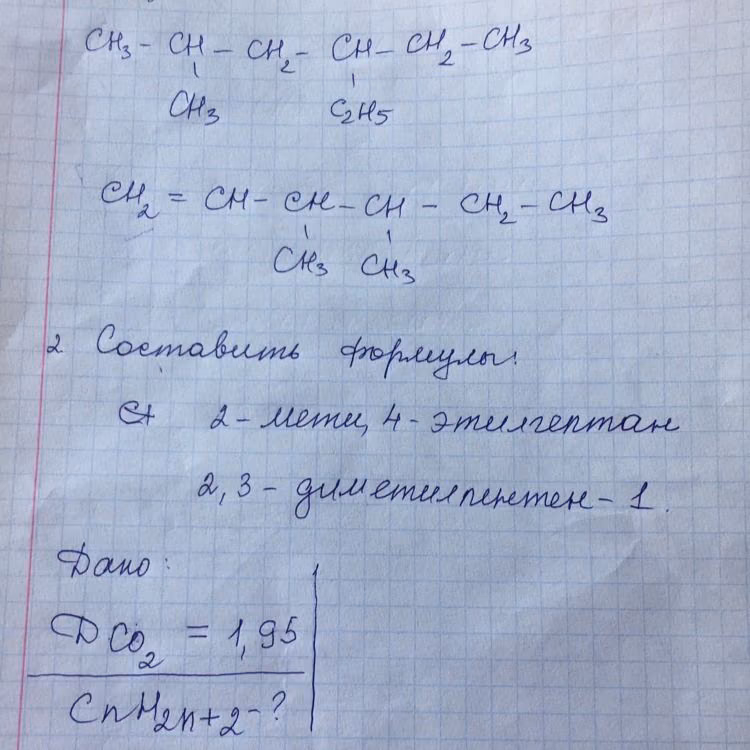 CH₃ - CH - CH₂ - CH - CH₂ - CH₃
CH₃ C₂H₅
CH₂ = CH - CH - CH - CH₂ - CH₃
CH₃ CH₃
2 Составить формулы:
2 - метил, 4 - этилгептан
2,3 - диметилпентен - 1.
Дано:
D CO₂ = 1,95
CnH₂n+2 - ?